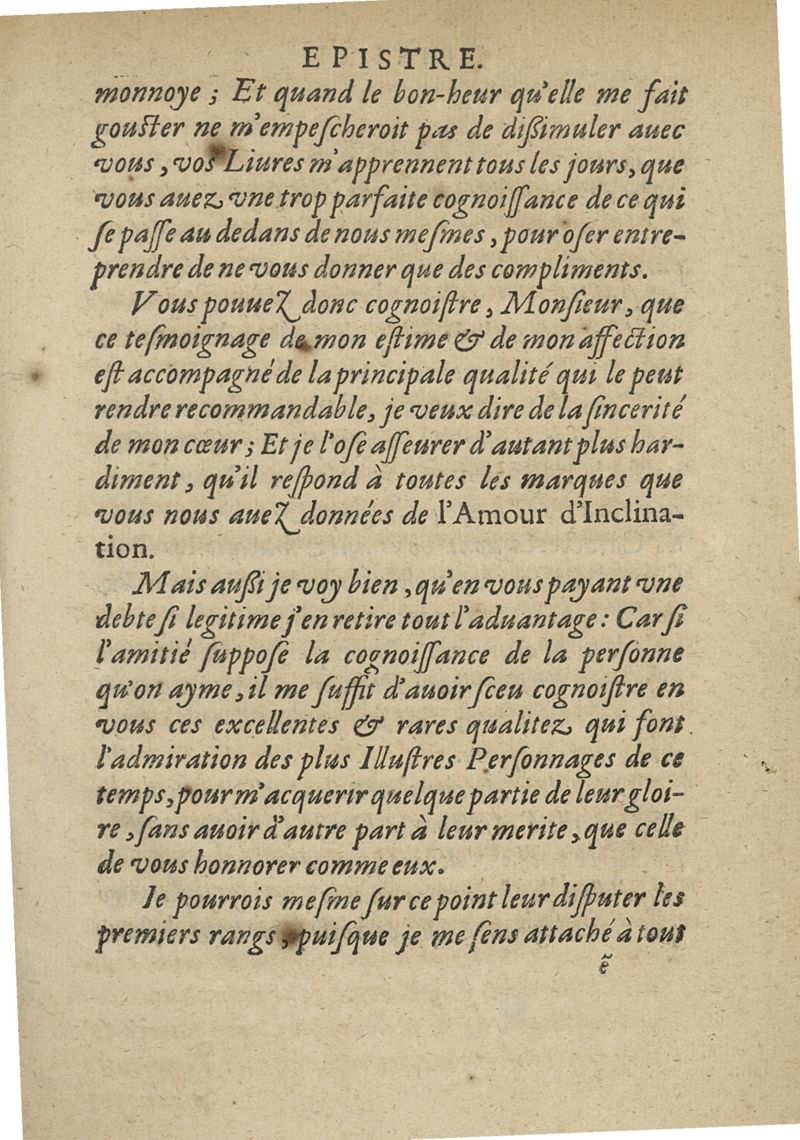 EPISTRE.
monnoye ; Et quand le bon-heur qu'elle me fait
gouster ne m'empeſcheroit pas de dißimuler auec
vous, vos Liures m'apprennent tous les jours, que
vous auez vne trop parfaite cognoiſſance de ce qui
ſe paſſe au dedans de nous meſmes, pour oſer entre-
prendre de ne vous donner que des compliments.
Vous pouuez donc cognoiſtre, Monſieur, que
ce teſmoignage de mon eſtime & de mon affection
eſt accompagné de la principale qualité qui le peut
rendre recommandable, je veux dire de la ſincerité
de mon cœur ; Et je l'oſe aſſeurer d'autant plus har-
diment, qu'il reſpond à toutes les marques que
vous nous auez données de l'Amour d'Inclina-
tion.
Mais außi je voy bien, qu'en vous payant vne
debte ſi legitime j'en retire tout l'aduantage : Car ſi
l'amitié ſuppoſe la cognoiſſance de la perſonne
qu'on ayme, il me ſuffit d'auoir ſceu cognoiſtre en
vous ces excellentes & rares qualitez qui font
l'admiration des plus Illuſtres Perſonnages de ce
temps, pour m'acquerir quelque partie de leur gloi-
re, ſans auoir d'autre part à leur merite, que celle
de vous honnorer comme eux.
Ie pourrois meſme ſur ce point leur diſputer les
premiers rangs, puiſque je me ſens attaché à tout
ẽ